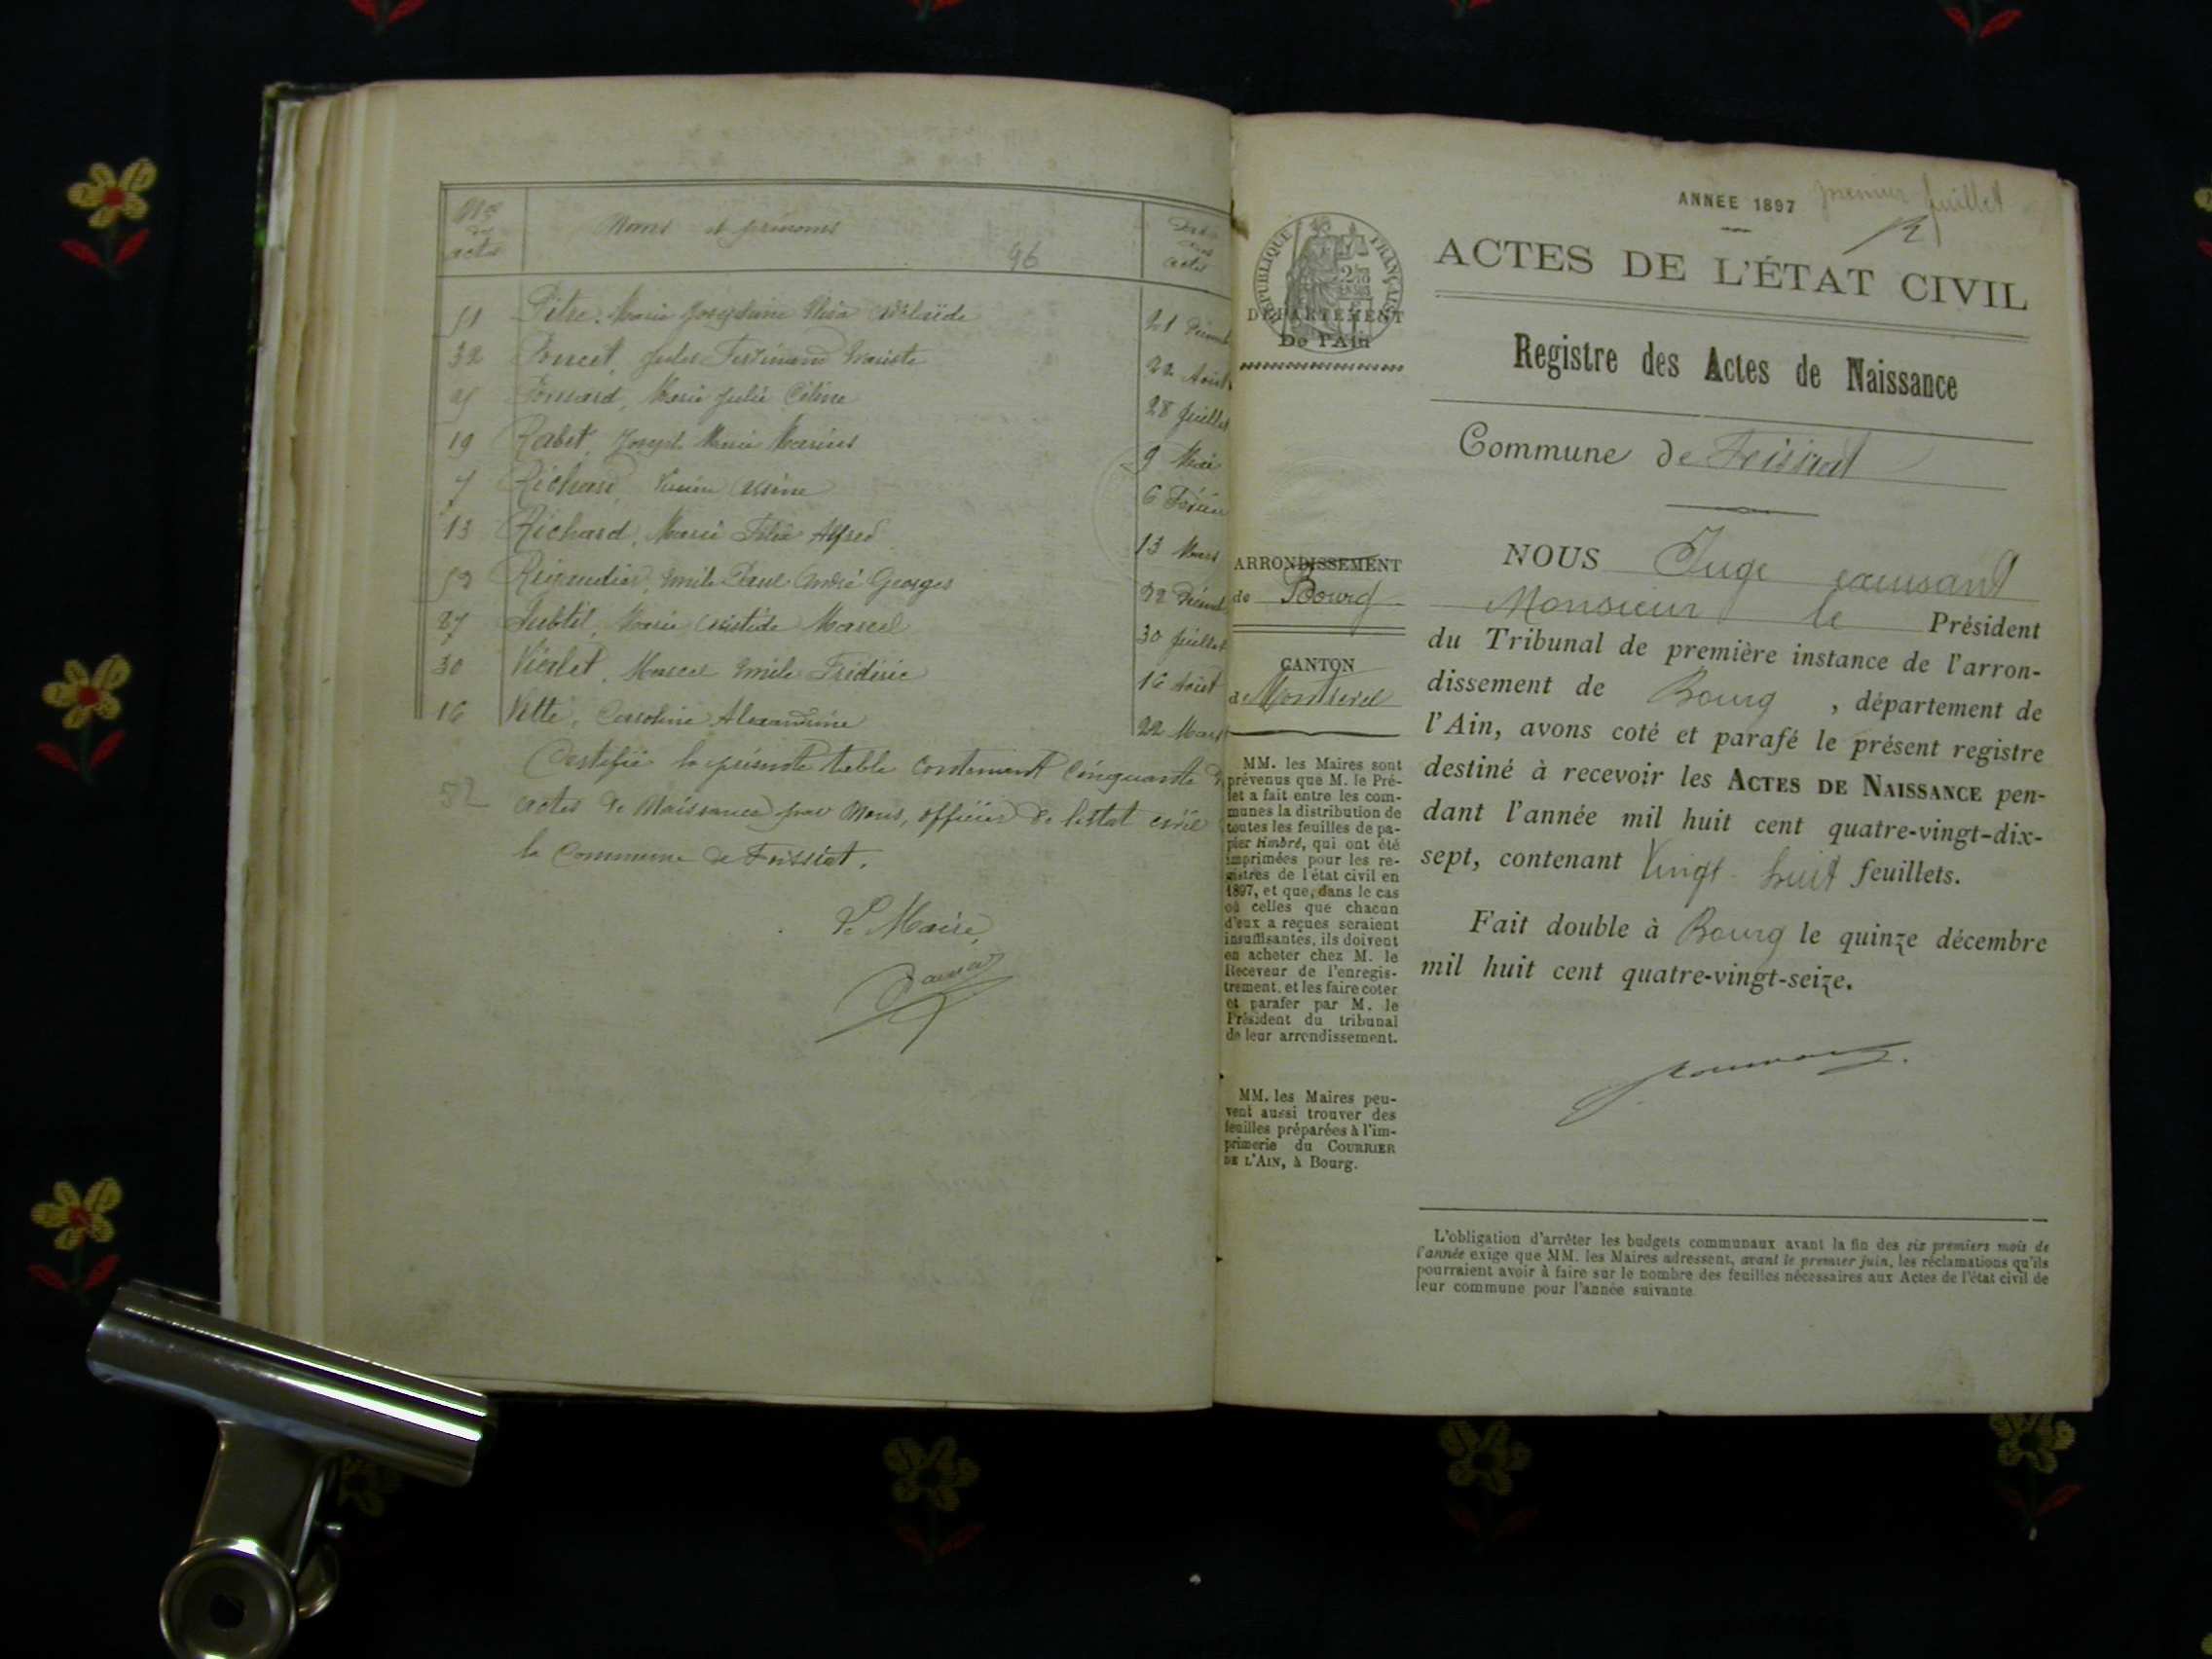 Nos des actes
Noms et prénoms
96
actes
51 Pitre, Marie Joséphine Adélaïde 21
32 Poncet, Jules Ferdinand 22 Août
Marie Julie Céline 28 Juillet
19 Rabet, Joseph Marie Marius 9 Mai
7 Richard, 6
13 Richard, Marie Alfred 13 Mars
52 Rigaudier, Emile Paul André Georges 22
27 Subtil, Marie Aristide Marcel 30 Juillet
30 Violet, Marcel Emile Frédéric 16 Août
16 Caroline Alexandrine 22 Mars
Certifié la présente table contenant cinquante
52 actes de Naissance par Nous, officier de l'état civil
la Commune de
Le Maire,
ANNÉE 1897 premier feuillet
RÉPUBLIQUE FRANÇAISE
DÉPARTEMENT
De l'Ain
ACTES DE L'ÉTAT CIVIL
Registre des Actes de Naissance
Commune de
ARRONDISSEMENT
de Bourg
CANTON
de Montrevel
MM. les Maires sont
prévenus que M. le Pré-
fet a fait entre les com-
munes la distribution de
toutes les feuilles de pa-
pier timbré, qui ont été
imprimées pour les re-
gistres de l'état civil en
1897, et que, dans le cas
où celles que chacun
d'eux a reçues seraient
insuffisantes, ils doivent
en acheter chez M. le
Receveur de l'enregis-
trement, et les faire coter
et parafer par M. le
Président du tribunal
de leur arrondissement.
MM. les Maires peu-
vent aussi trouver des
feuilles préparées à l'im-
primerie du COURRIER
DE L'AIN, à Bourg.
NOUS Juge
Monsieur le Président
du Tribunal de première instance de l'arron-
dissement de Bourg , département de
l'Ain, avons coté et parafé le présent registre
destiné à recevoir les ACTES DE NAISSANCE pen-
dant l'année mil huit cent quatre-vingt-dix-
sept, contenant Vingt-huit feuillets.
Fait double à Bourg le quinze décembre
mil huit cent quatre-vingt-seize.
L'obligation d'arrêter les budgets communaux avant la fin des six premiers mois de
l'année exige que MM. les Maires adressent, avant le premier juin, les réclamations qu'ils
pourraient avoir à faire sur le nombre des feuilles nécessaires aux Actes de l'état civil de
leur commune pour l'année suivante